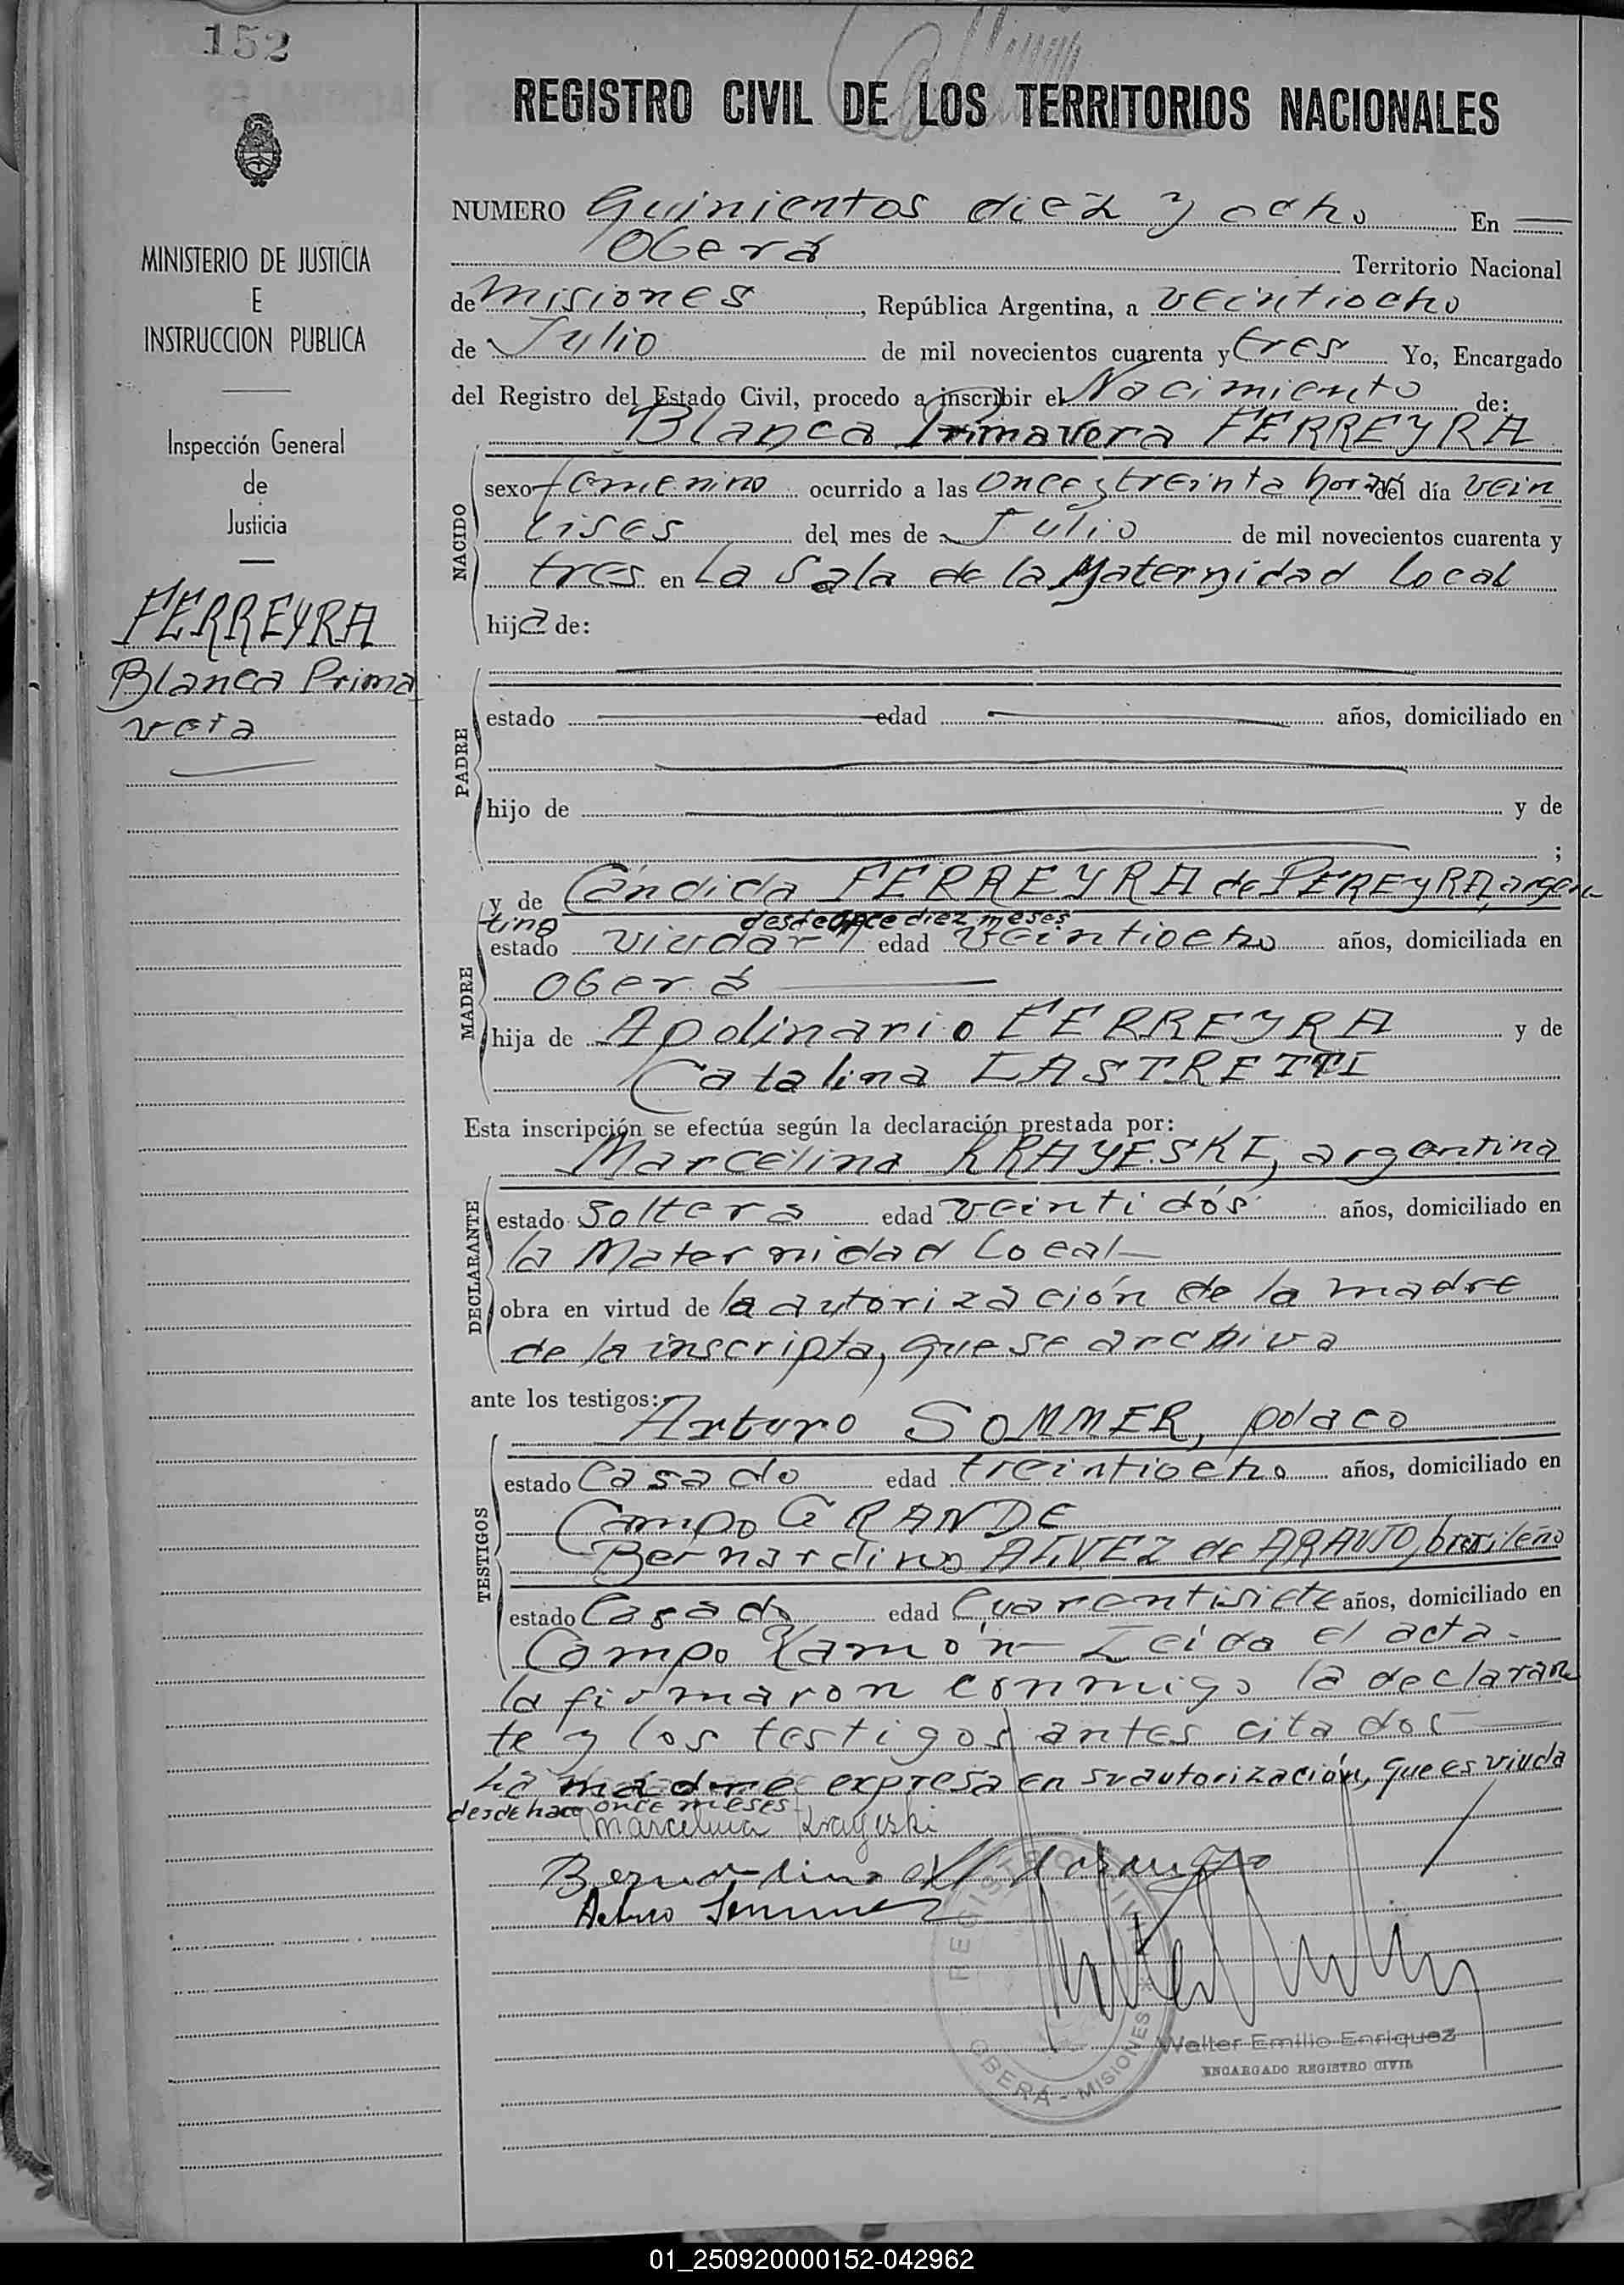 152
REGISTRO CIVIL DE LOS TERRITORIOS NACIONALES
MINISTERIO DE JUSTICIA
E
INSTRUCCION PUBLICA
Inspección General
de
Justicia
FERREYRA
Blanca Prima
vera
NUMERO Quinientos diez y ocho En
Oberá Territorio Nacional
de Misiones, República Argentina, a veintiocho
de Julio de mil novecientos cuarenta y tres Yo, Encargado
del Registro del Estado Civil, procedo a inscribir el Nacimiento de:
Blanca Primavera FERREYRA
NACIDO
sexo femenino ocurrido a las once y treinta horas del día vein
tiseis del mes de Julio de mil novecientos cuarenta y
tres en La Sala de la Maternidad local
hija de:
PADRE
estado edad años, domiciliado en
hijo de y de
;
MADRE
y de Cándida FERREYRA de PEREYRA, argen
tina desde hace diez meses
estado viuda edad veintiocho años, domiciliada en
Oberá
hija de Apolinario FERREYRA y de
Catalina LASTRETTI
Esta inscripción se efectúa según la declaración prestada por:
Marcelina KRAYESKI, argentina
DECLARANTE
estado soltera edad veintidós años, domiciliado en
la Maternidad Local
obra en virtud de la autorización de la madre
de la inscripta, que se archiva
ante los testigos:
Arturo SOMMER, polaco
TESTIGOS
estado Casado edad treintiocho años, domiciliado en
Campo GRANDE
Bernardino ALVEZ de ARAUJO, brasileño
estado Casado edad Cuarentisiete años, domiciliado en
Campo Ramón Leida el acta
la firmaron conmigo la declaran
te y los testigos antes citados
La madre expresa en su autorización, que es viuda
desde hace once meses
Marcelina Krayeski
Bernardino
Arturo Sommer
REGISTRO CIVIL
OBERA - MISIONES
Walter Emilio Enriquez
ENCARGADO REGISTRO CIVIL
01_250920000152-042962